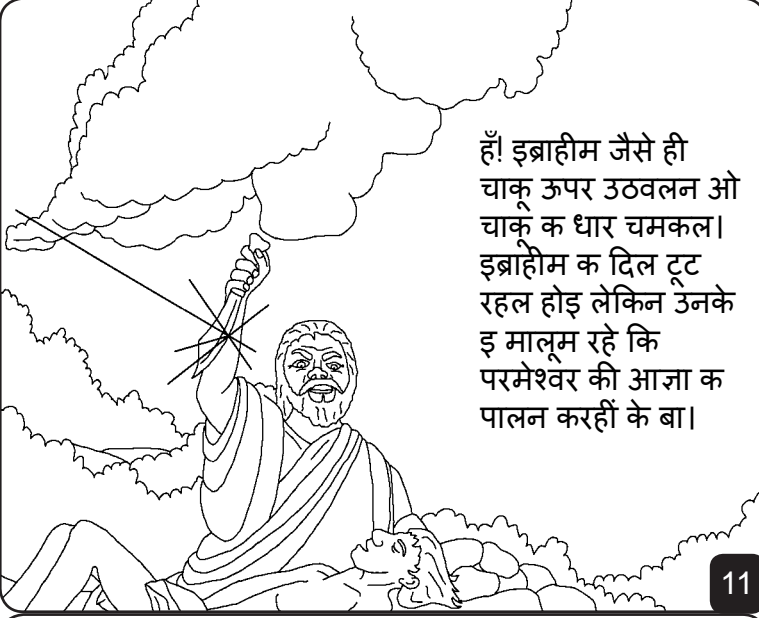 हँ! इब्राहीम जैसे ही
चाकू ऊपर उठवलन ओ
चाकू क धार चमकल।
इब्राहीम क दिल टूट
रहल होइ लेकिन उनके
इ मालूम रहे कि
परमेश्वर की आज्ञा क
पालन करहीं के बा।
11